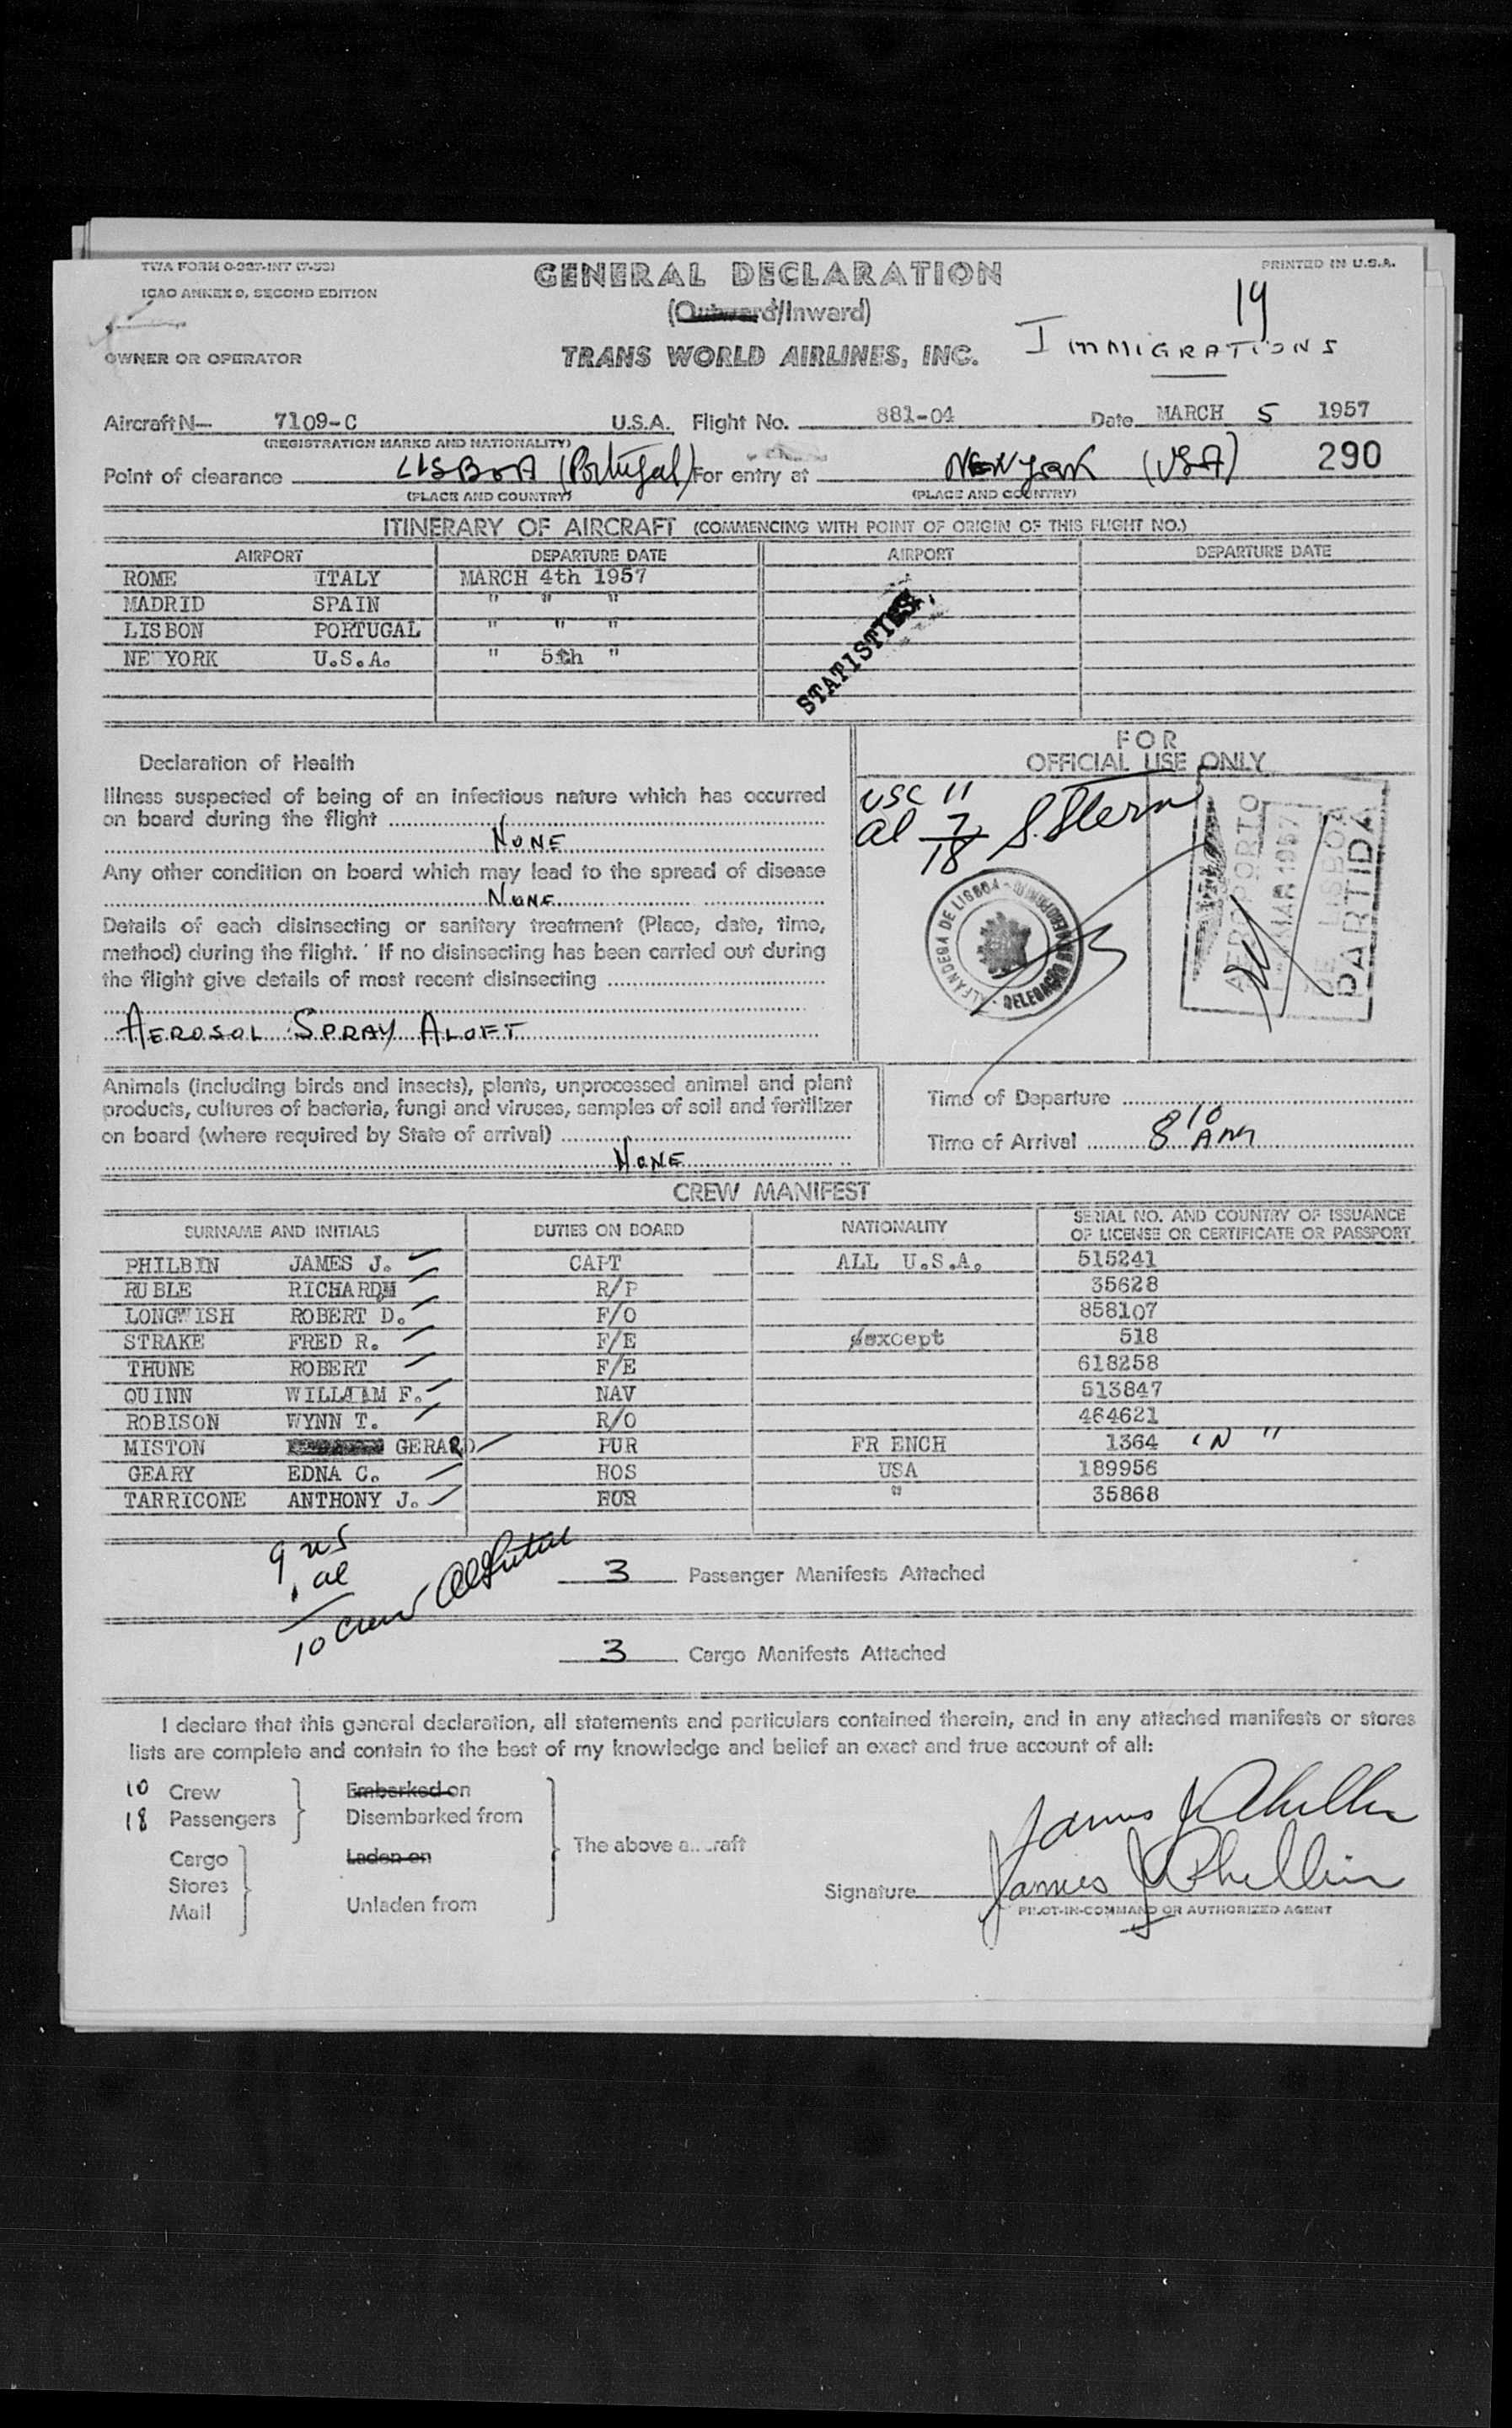 TWA FORM O-327-INT (7-53)
GENERAL DECLARATION
PRINTED IN U.S.A.
ICAO ANNEX 9, SECOND EDITION
19
(Outward/Inward)
IMMIGRATIONS
OWNER OR OPERATOR
TRANS WORLD AIRLINES, INC.
Aircraft N— 7109-C U.S.A. Flight No. 881-04 Date MARCH 5 1957
(REGISTRATION MARKS AND NATIONALITY)
Point of clearance LISBOA (Portugal) For entry at NEW YORK (USA) 290
(PLACE AND COUNTRY) (PLACE AND COUNTRY)
ITINERARY OF AIRCRAFT (COMMENCING WITH POINT OF ORIGIN OF THIS FLIGHT NO.)
AIRPORT DEPARTURE DATE AIRPORT DEPARTURE DATE
ROME ITALY MARCH 4th 1957
MADRID SPAIN " " "
LISBON PORTUGAL " " "
NE YORK U.S.A. " 5th "
STATISTICS
Declaration of Health
Illness suspected of being of an infectious nature which has occurred
on board during the flight
NONE
Any other condition on board which may lead to the spread of disease
NONE
Details of each disinsecting or sanitary treatment (Place, date, time,
method) during the flight. If no disinsecting has been carried out during
the flight give details of most recent disinsecting
AEROSOL SPRAY ALOFT
FOR
OFFICIAL USE ONLY
USC 11
al 7
18
S. Stern
ALFANDEGA DE LISBOA
AEROPORTO
MAR 1957
DE LISBOA
PARTIDA
Animals (including birds and insects), plants, unprocessed animal and plant
products, cultures of bacteria, fungi and viruses, samples of soil and fertilizer
on board (where required by State of arrival)
NONE
Time of Departure
Time of Arrival 8 10 AM
CREW MANIFEST
SURNAME AND INITIALS DUTIES ON BOARD NATIONALITY SERIAL NO. AND COUNTRY OF ISSUANCE
OF LICENSE OR CERTIFICATE OR PASSPORT
PHILBIN JAMES J. CAPT ALL U.S.A. 515241
RUBLE RICHARD R/P 35628
LONGWISH ROBERT D. F/O 858107
STRAKE FRED R. F/E except 518
THUNE ROBERT F/E 618258
QUINN WILLIAM F. NAV 513847
ROBISON WYNN T. R/O 464621
MISTON GERARD PUR FR ENCH 1364 "N"
GEARY EDNA C. HOS USA 189956
TARRICONE ANTHONY J. PUR " 35868
9 us
1 al
10 crew
3 Passenger Manifests Attached
3 Cargo Manifests Attached
I declare that this general declaration, all statements and particulars contained therein, and in any attached manifests or stores
lists are complete and contain to the best of my knowledge and belief an exact and true account of all:
10 Crew
18 Passengers
Embarked on
Disembarked from
Cargo
Stores
Mail
Laden on
Unladen from
The above a raft
James J Philbin
Signature James J Philbin
PILOT-IN-COMMAND OR AUTHORIZED AGENT